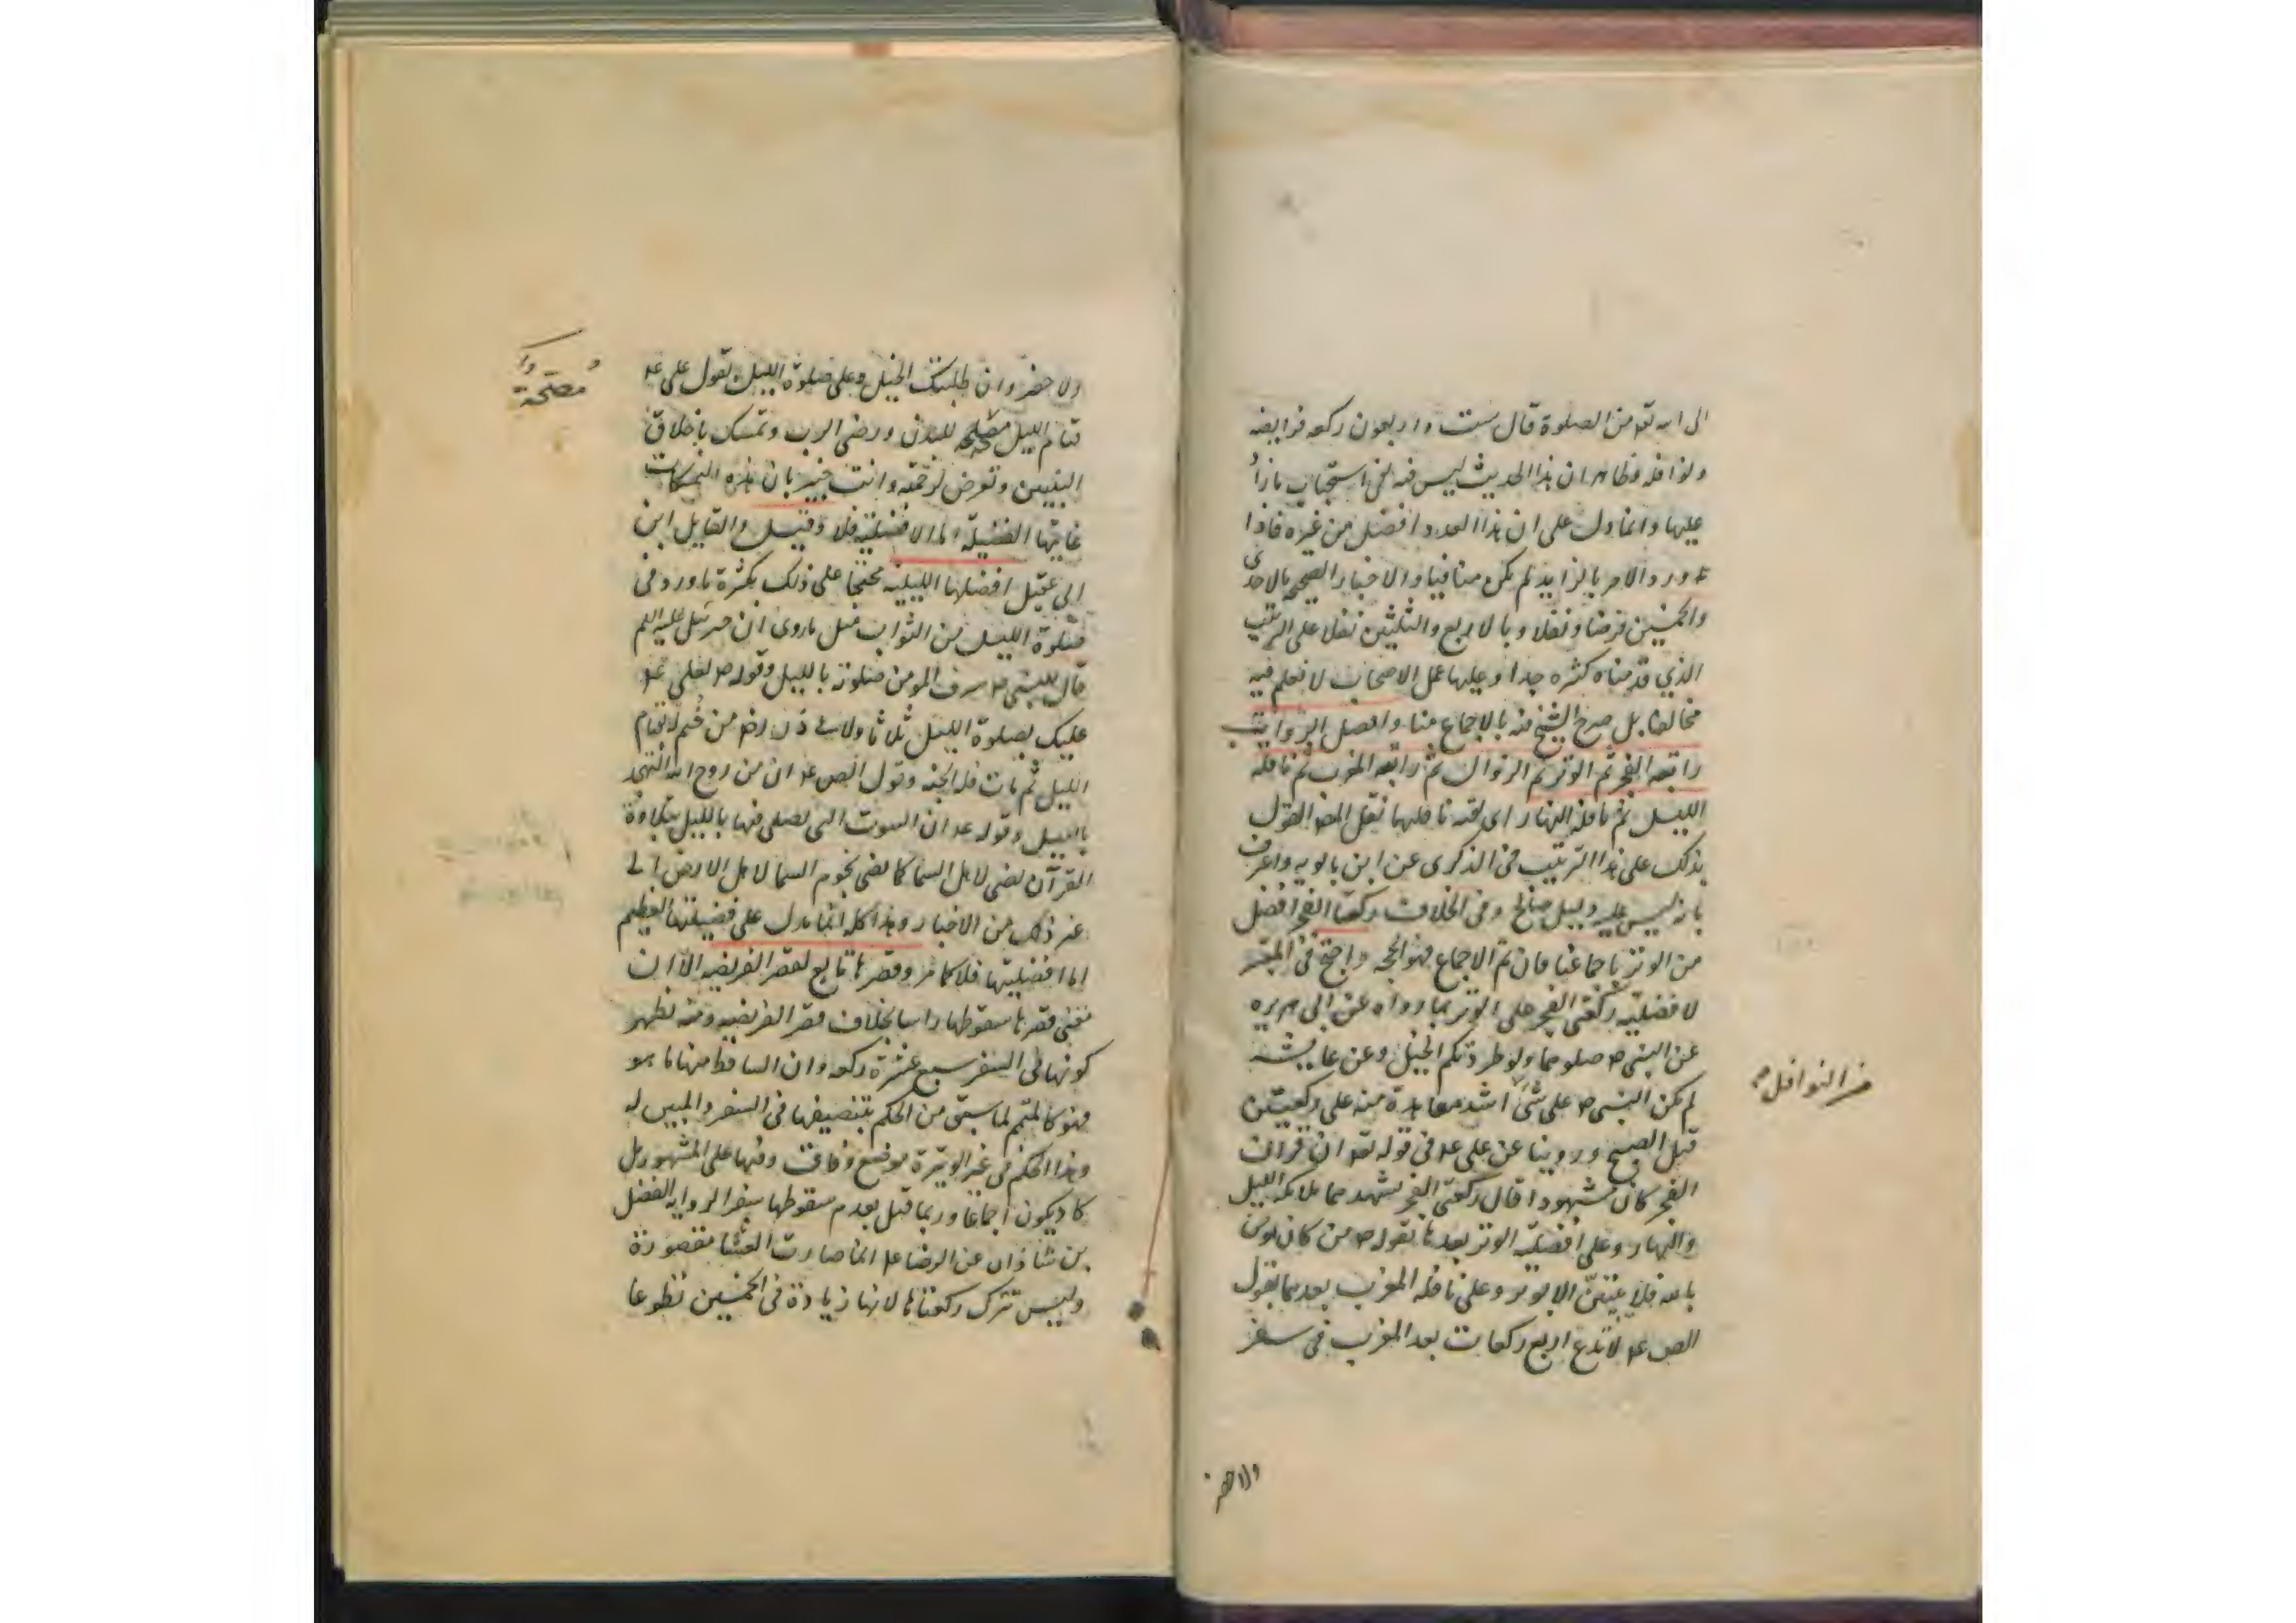 الى الله تعو من الصلوة قال ست واربعون ركعه فرايضه
ونوافله وظاهر ان هذا الحديث ليس فيه نفى استحباب ما زاد
عليها وانما دل على ان هذا العدد افضل من غيره فاذا
ورد الامر بالزايد لم يكن منافيا والاخبار الصحيحه بالاحدى
والخمسين فرضا ونفلا وبالاربع والثلثين نفلا على الترتيب
الذي قدمناه كثيره جدا وعليها عمل الاصحاب لا نعلم فيه
مخالفا بل صرح الشيخ فيه بالاجماع منا وافضل الرواتب
راتبه الفجر ثم الوتر ثم الزوال ثم راتبه المغرب ثم نافله
الليل ثم نافله النهار اى بقيه نافلهما نقل المص القول
بذلك على هذا الترتيب فى الذكرى عن ابن بابويه واعترف
بانه ليس عليه دليل صالح وفى الخلاف ركعتا الفجر افضل
من الوتر باجماعنا فان تم الاجماع فهو الحجه واحتج فى المعتبر
لافضليه ركعتى الفجر على الوتر بما رواه عن ابى هريره
عن النبى ص صلوهما ولو طردتكم الخيل وعن عايشه
لم يكن النبى ص على شئ اشد معاهدة منه على ركعتين
قبل الصبح وروينا عن على عه فى قوله تعو ان قران
الفجر كان مشهودا قال ركعتى الفجر تشهدهما ملائكه الليل
والنهار وعلى افضليه الوتر بعدها بقوله ص من كان يومن
بالله فلا يبيتن الا بوتر وعلى نافله المغرب بعدهما بقول
الص عه لا تدع اربع ركعات بعد المغرب فى سفر
من النوافل
ولا حضر
ولا حضر وان طلبتك الخيل وعلى صلوة الليل بقول على عه
قيام الليل مصلحه للبدن ورضى الرب وتمسك باخلاق
النبيين وتعرض لرحمته وانت خبير بان هذه التمسكات
غايتها الفضيلة اما الافضليه فلا وقيل والقايل ابن
ابى عقيل افضلها الليليه محتجا على ذلك بكثرة ما ورد فى
صلوة الليل من الثواب مثل ما روى ان جبرئيل عليه السلم
قال للنبى ص شرف المومن صلوته بالليل وقوله ص لعلى عه
عليك بصلوة الليل ثلاثا ولابى ذر من ختم له بقيام
الليل ثم مات فله الجنه وقول الص عه ان من روح الله التهجد
بالليل وقوله عه ان البيوت التى يصلى فيها بالليل بتلاوة
القرآن تضى لاهل السما كما تضى نجوم السما لاهل الارض الى
غير ذلك من الاخبار وهذا كله انما يدل على فضيلتها العظيم
اما افضليتها فلا كما مر وقصرها تابع لقصر الفريضه الا ان
معنى قصرها سقوطها راسا بخلاف قصر الفريضه ومنه يظهر
كونها فى السفر سبع عشرة ركعه وان الساقط منها ما هو
فهو كالمتمم لما سبق من الحكم بتنصيفها فى السفر والمبين له
وهذا الحكم فى غير الوتيرة موضع وفاق وفيها على المشهور بل
كاد يكون اجماعا وربما قيل بعدم سقوطها سفرا لروايه الفضل
بن شاذان عن الرضا عه انما صارت العشا مقصورة
وليس تترك ركعتاها لانها زيادة فى الخمسين تطوعا
مصحة